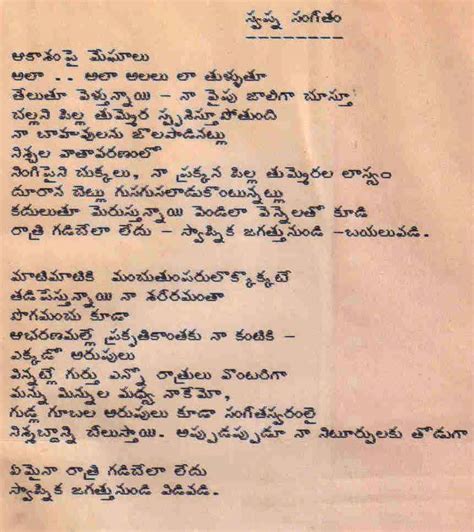 స్వప్న సంగీతం
ఆకాశంపై మేఘాలు
అలా .. అలా అలలు లా తుళ్ళుతూ
తేలుతూ వెళ్తున్నాయి - నా వైపు జాలిగా చూస్తూ
చల్లని పిల్ల తుమ్మెర స్పృశిస్తూపోతుంది
నా బాహువులను జోలపాడినట్లు
నిశ్చల వాతావరణంలో
నింగిపైని చుక్కలు, నా ప్రక్కన పిల్ల తుమ్మెరల లాస్యం
దూరాన చెట్లు గుసగుసలాడుకొంటున్నట్లు
కదులుతూ మెరుస్తున్నాయి వెండిలా వెన్నెలతో కూడి
రాత్రి గడిచేలా లేదు - స్వాప్నిక జగత్తునుండి -బయలువడి.
మాటిమాటికి మంచుతుంపరులొక్కొక్కటే
తడిపేస్తున్నాయి నా శరీరమంతా
పొగమంచు కూడా
ఆభరణమల్లే ప్రకృతికాంతకు నా కంటికి -
ఎక్కడో అరుపులు
విన్నట్లే గుర్తు ఎన్నో రాత్రులు వొంటరిగా
మన్ను మిన్నుల మధ్య నాకేమో,
గుడ్ల గూబల అరుపులు కూడా సంగీతస్వరంలై
నిశ్శబ్దాన్ని చీలుస్తాయి. అప్పుడప్పుడూ నా నిటూర్పులకు తోడుగా
ఏమైనా రాత్రి గడిచేలా లేదు
స్వాప్నిక జగత్తునుండి విడివడి.